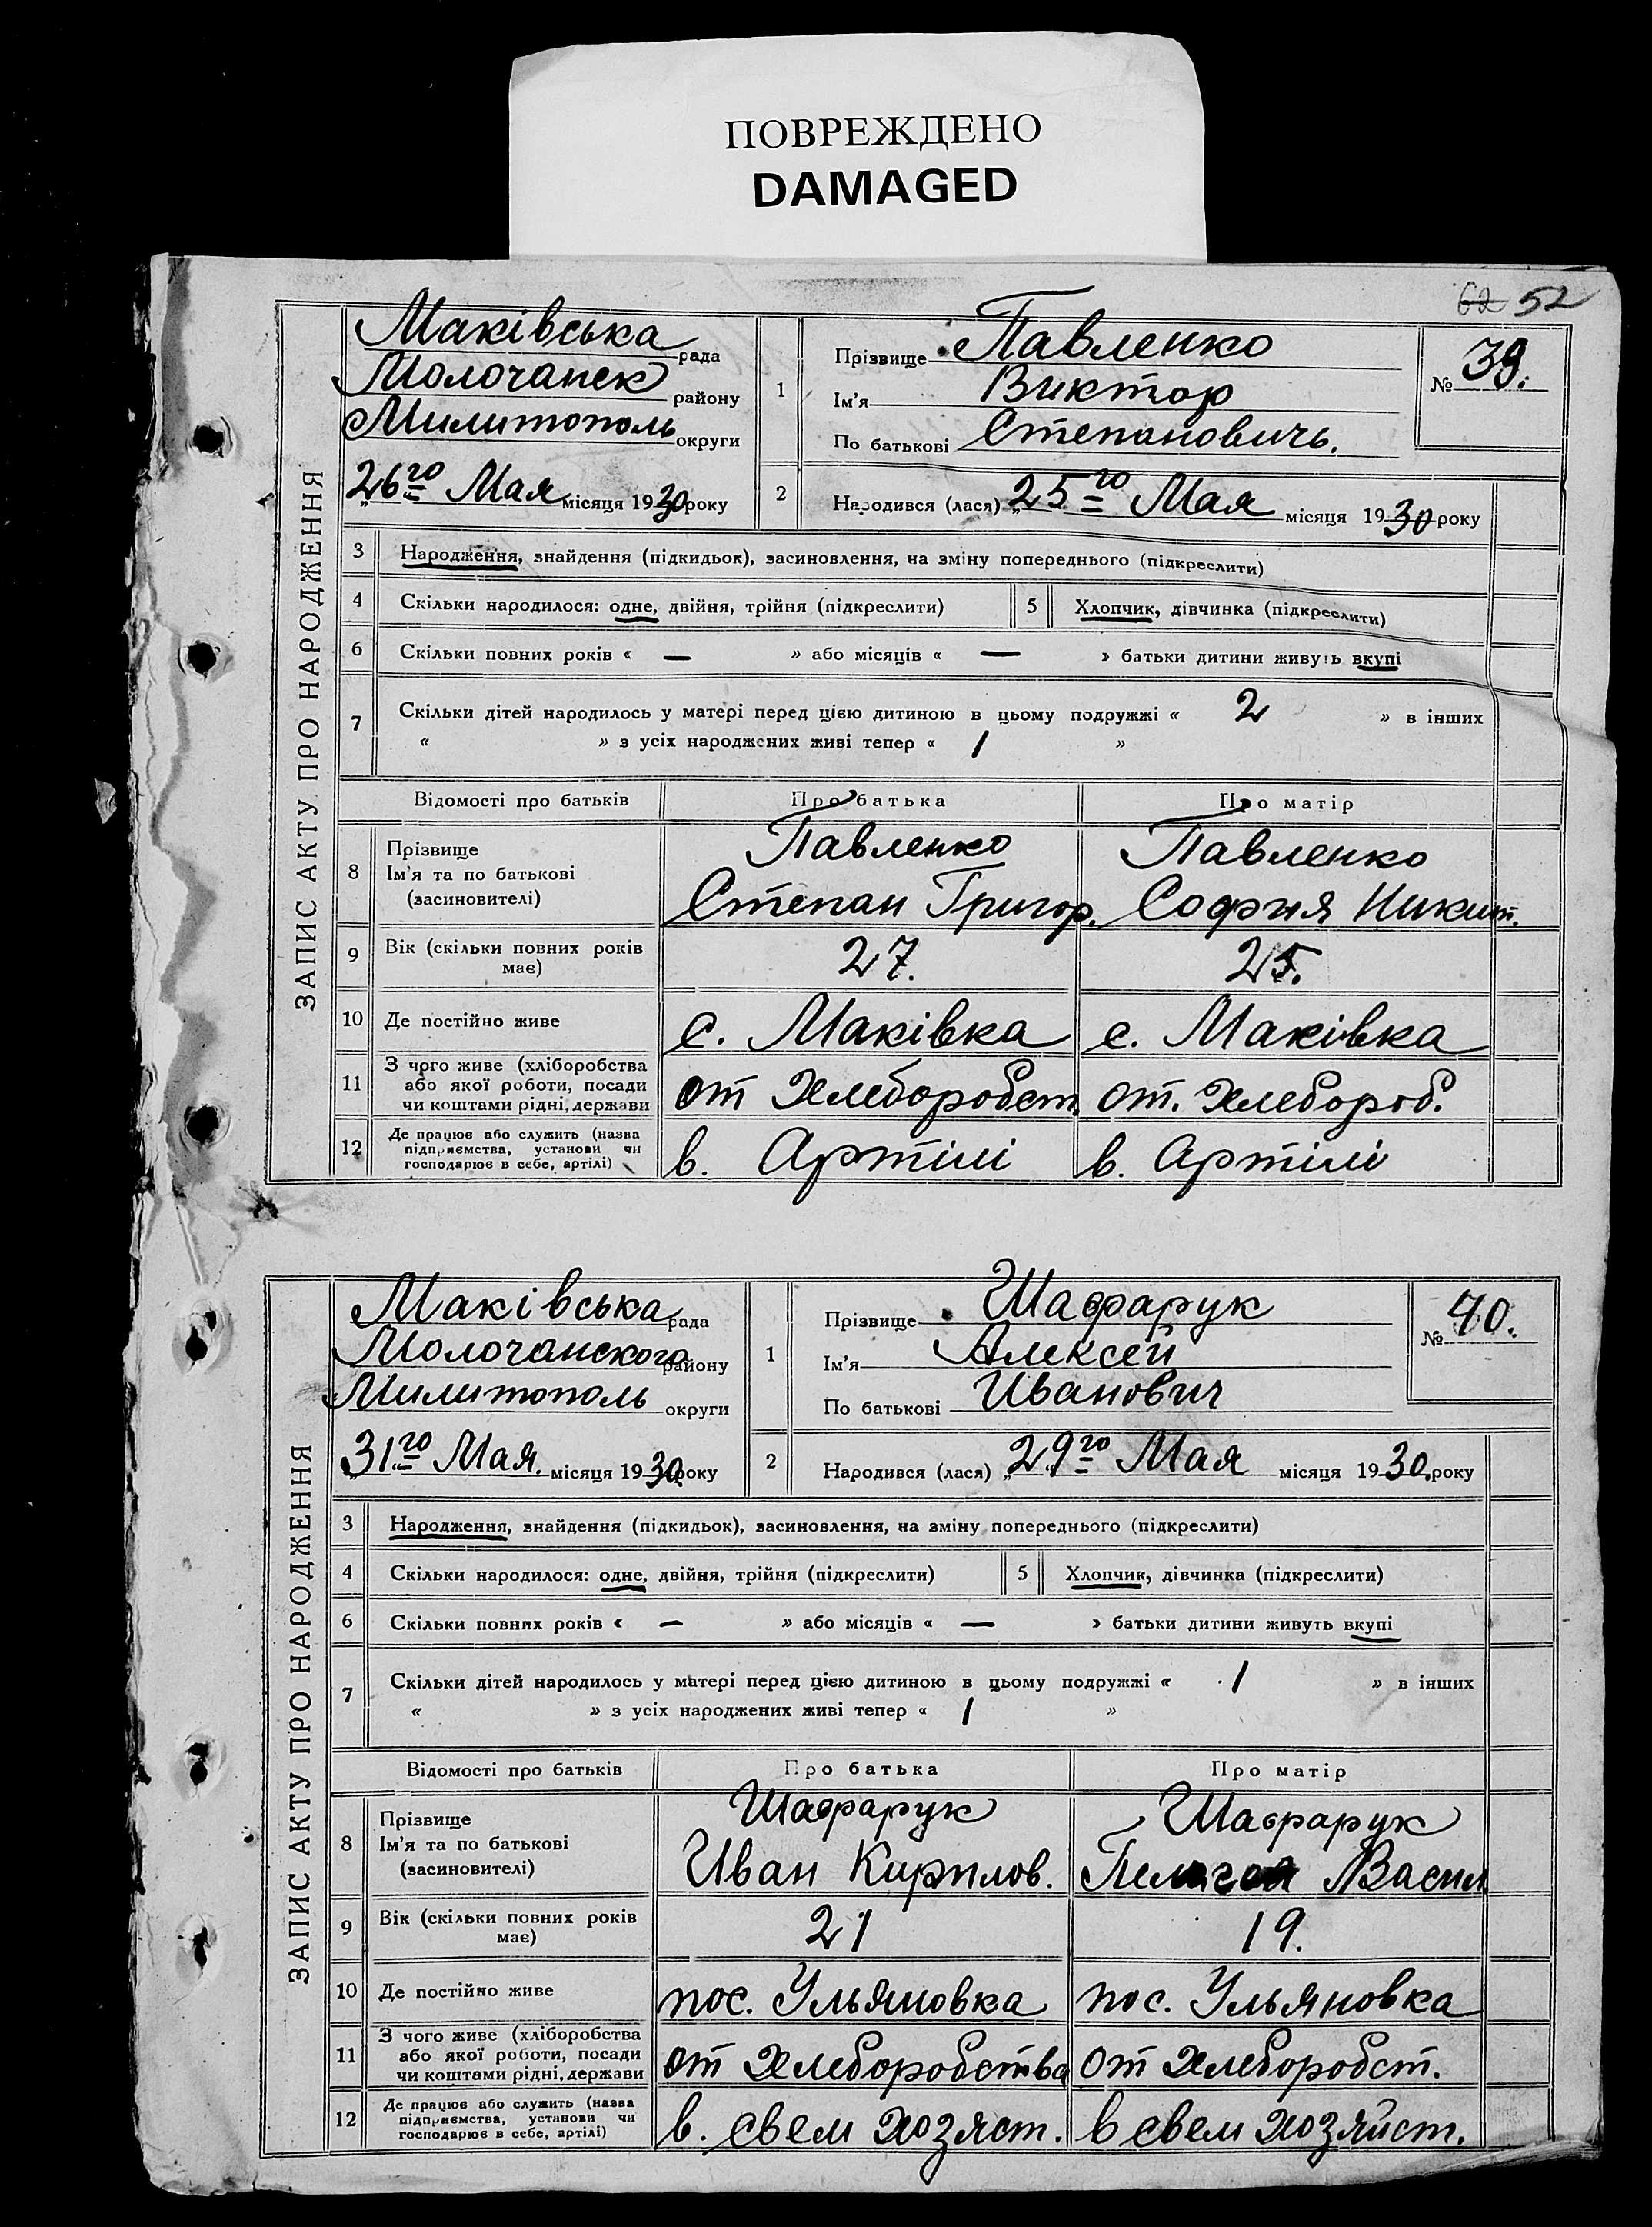 ПОВРЕЖДЕНО
DAMAGED
62 52
ЗАПИС АКТУ ПРО НАРОДЖЕННЯ
Маківська рада
Молочанск району
Милитополь округи
„26го Мая місяця 1930 року
1
Прізвище Павленко
Ім'я Виктор
По батькові Степановичь.
№ 39.
2
Народився (лася) „25го Мая місяця 1930 року
3 Народження, знайдення (підкидьок), засиновлення, на зміну попереднього (підкреслити)
4 Скільки народилося: одне, двійня, трійня (підкреслити) 5 Хлопчик, дівчинка (підкреслити)
6 Скільки повних років « — » або місяців « — » батьки дитини живуть вкупі
7 Скільки дітей народилось у матері перед цією дитиною в цьому подружжі « 2 » в інших
« » з усіх народжених живі тепер « 1 »
Відомості про батьків Про батька Про матір
8 Прізвище Павленко Павленко
Ім'я та по батькові
(засиновителі) Степан Григор. Софня Никит.
9 Вік (скільки повних років має) 27. 25.
10 Де постійно живе с. Маківка с. Маківка
11 З чого живе (хліборобства
або якої роботи, посади
чи коштами рідні, держави от Хлеборобст. от. Хлебороб.
12 Де працює або служить (назва
підприємства, установи чи
господарює в себе, артілі) в. Артілі в. Артілі
ЗАПИС АКТУ ПРО НАРОДЖЕННЯ
Маківська рада
Молочанского району
Милитополь округи
„31го Мая. місяця 1930 року
1
Прізвище Шафарук
Ім'я Алексей
По батькові Иванович
№ 40.
2
Народився (лася) „29го Мая місяця 1930. року
3 Народження, знайдення (підкидьок), засиновлення, на зміну попереднього (підкреслити)
4 Скільки народилося: одне, двійня, трійня (підкреслити) 5 Хлопчик, дівчинка (підкреслити)
6 Скільки повних років « — » або місяців « — » батьки дитини живуть вкупі
7 Скільки дітей народилось у матері перед цією дитиною в цьому подружжі « 1 » в інших
« » з усіх народжених живі тепер « 1 »
Відомості про батьків Про батька Про матір
8 Прізвище Шафарук Шафарук
Ім'я та по батькові
(засиновителі) Иван Кирилов. Васил
9 Вік (скільки повних років має) 21 19.
10 Де постійно живе пос. Ульяновка пос. Ульяновка
11 З чого живе (хліборобства
або якої роботи, посади
чи коштами рідні, держави от Хлеборобства от Хлеборобст.
12 Де працює або служить (назва
підприємства, установи чи
господарює в себе, артілі) в. свем хозяст. в свем хозяйст.